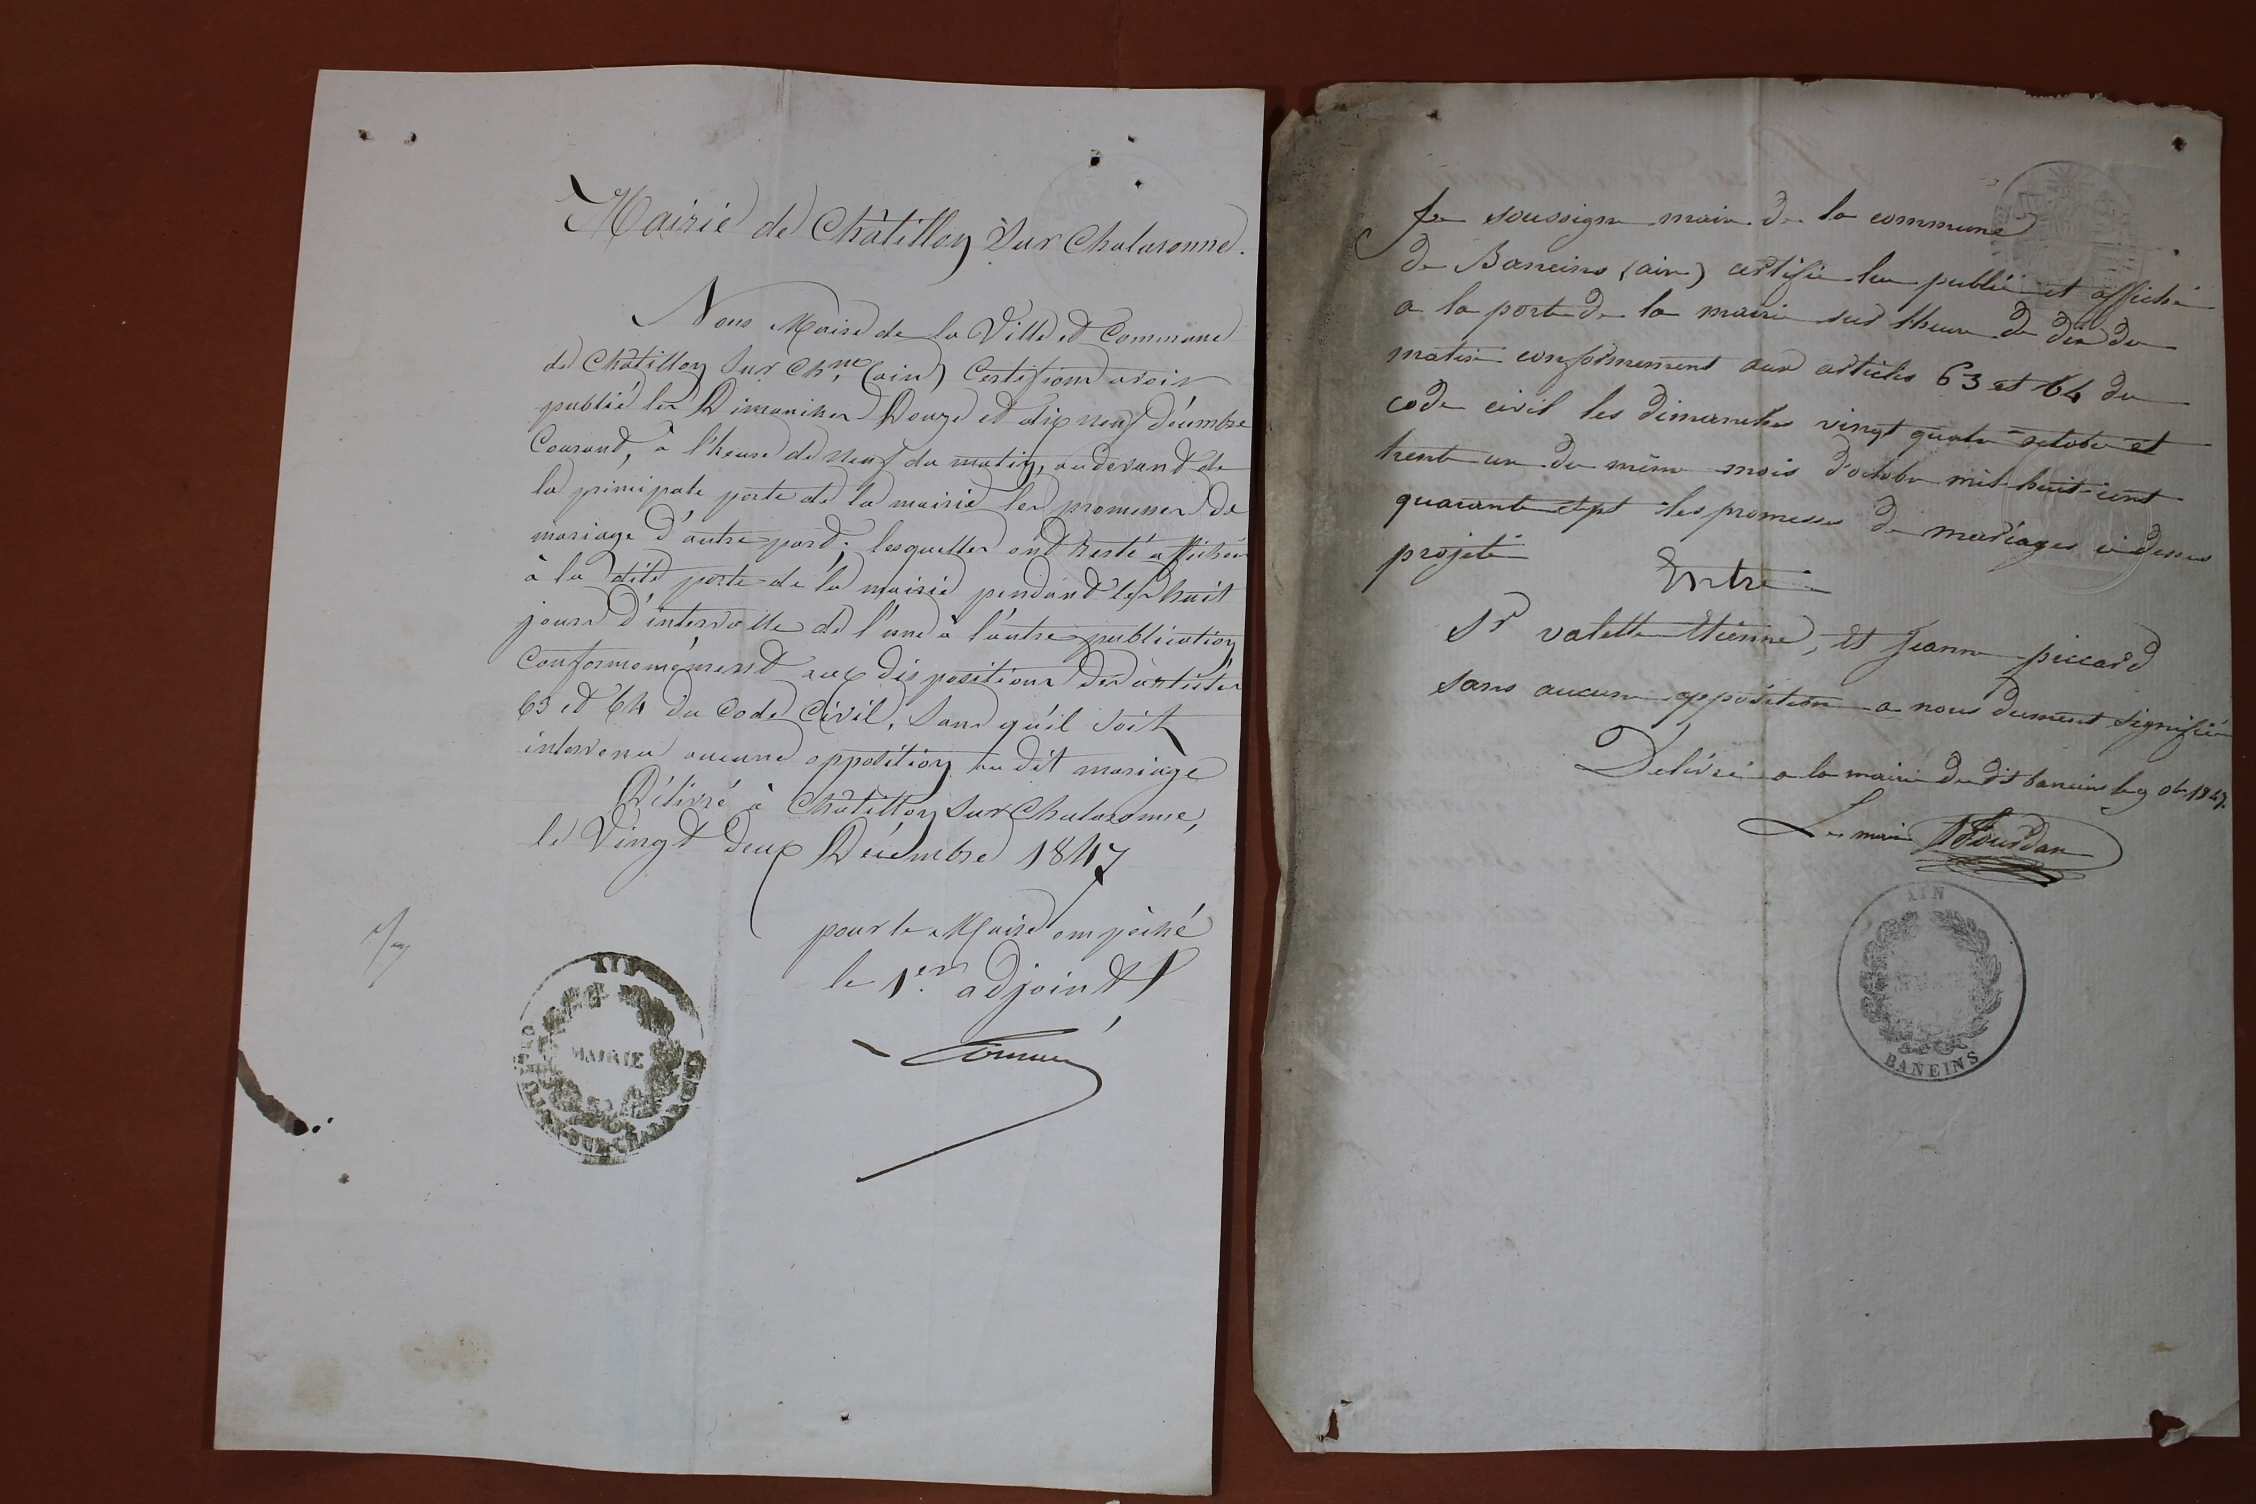 Mairie de Châtillon sur Chalaronne.
Nous Maire de la Ville et Commune
de Châtillon sur Ch.ne (ain) Certifions avoir
publié les Dimanches Douze et dix neuf Décembre
Courant, à l'heure de neuf du matin, au devant de
la principale porte de la mairie les promesses de
mariage d'autre part; lesquelles ont resté affichées
à la dite porte de la mairie pendant les huit
jours d'intervalle de l'une à l'autre publication
Conformémement aux dispositions des articles
63 et 64 du Code Civil, sans qu'il soit
intervenu aucune opposition au dit mariage
Délivré à Châtillon sur Chalaronne,
le Vingt deux Décembre 1847
pour le Maire empêché
le 1er adjoint
AIN
MAIRIE
Je soussigne maire de la commune
de Baneins (ain) certifie lu publié et affiché
a la porte de la mairie sus lheure de dix du
matin conformement aux articles 63 et 64 du
code civil les dimanches vingt quatre octobre et
trente un du même mois d'octobre mil huit cent
quarante sept les promesses de mariages ci dessus
projeté
Entre
Sr valette Etienne, et Jeanne piccard
sans aucune opposition a nous dument signifiée
Délivré a la mairie du dit baneins le 9 obr 1847.
Le maire Jourdan
AIN
MAIRIE
BANEINS